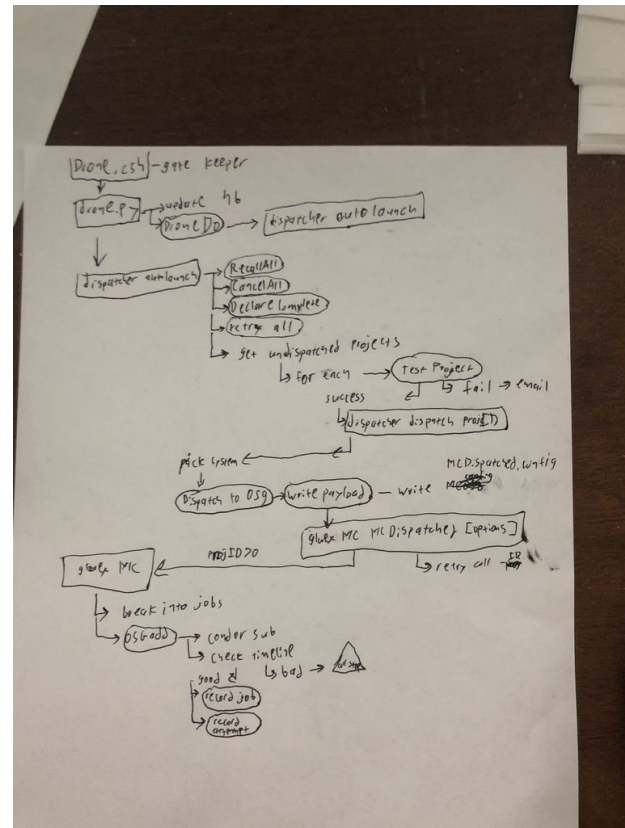 Drone.csh - gate keeper
drone.py update hb
DroneDo dispatcher autolaunch
dispatcher autolaunch RecallAll
CancelAll
DeclareComplete
retry all
get undispatched projects
for each Test Project
success fail email
dispatcher dispatch projID
pick system
MCDispatched.config
Dispatch to OSG write payload - write config
gluex MC MCDispatched [options]
gluex MC projID>0 retry call
break into jobs
OSGadd condor sub
check timeline
good bad
record job
record attempt